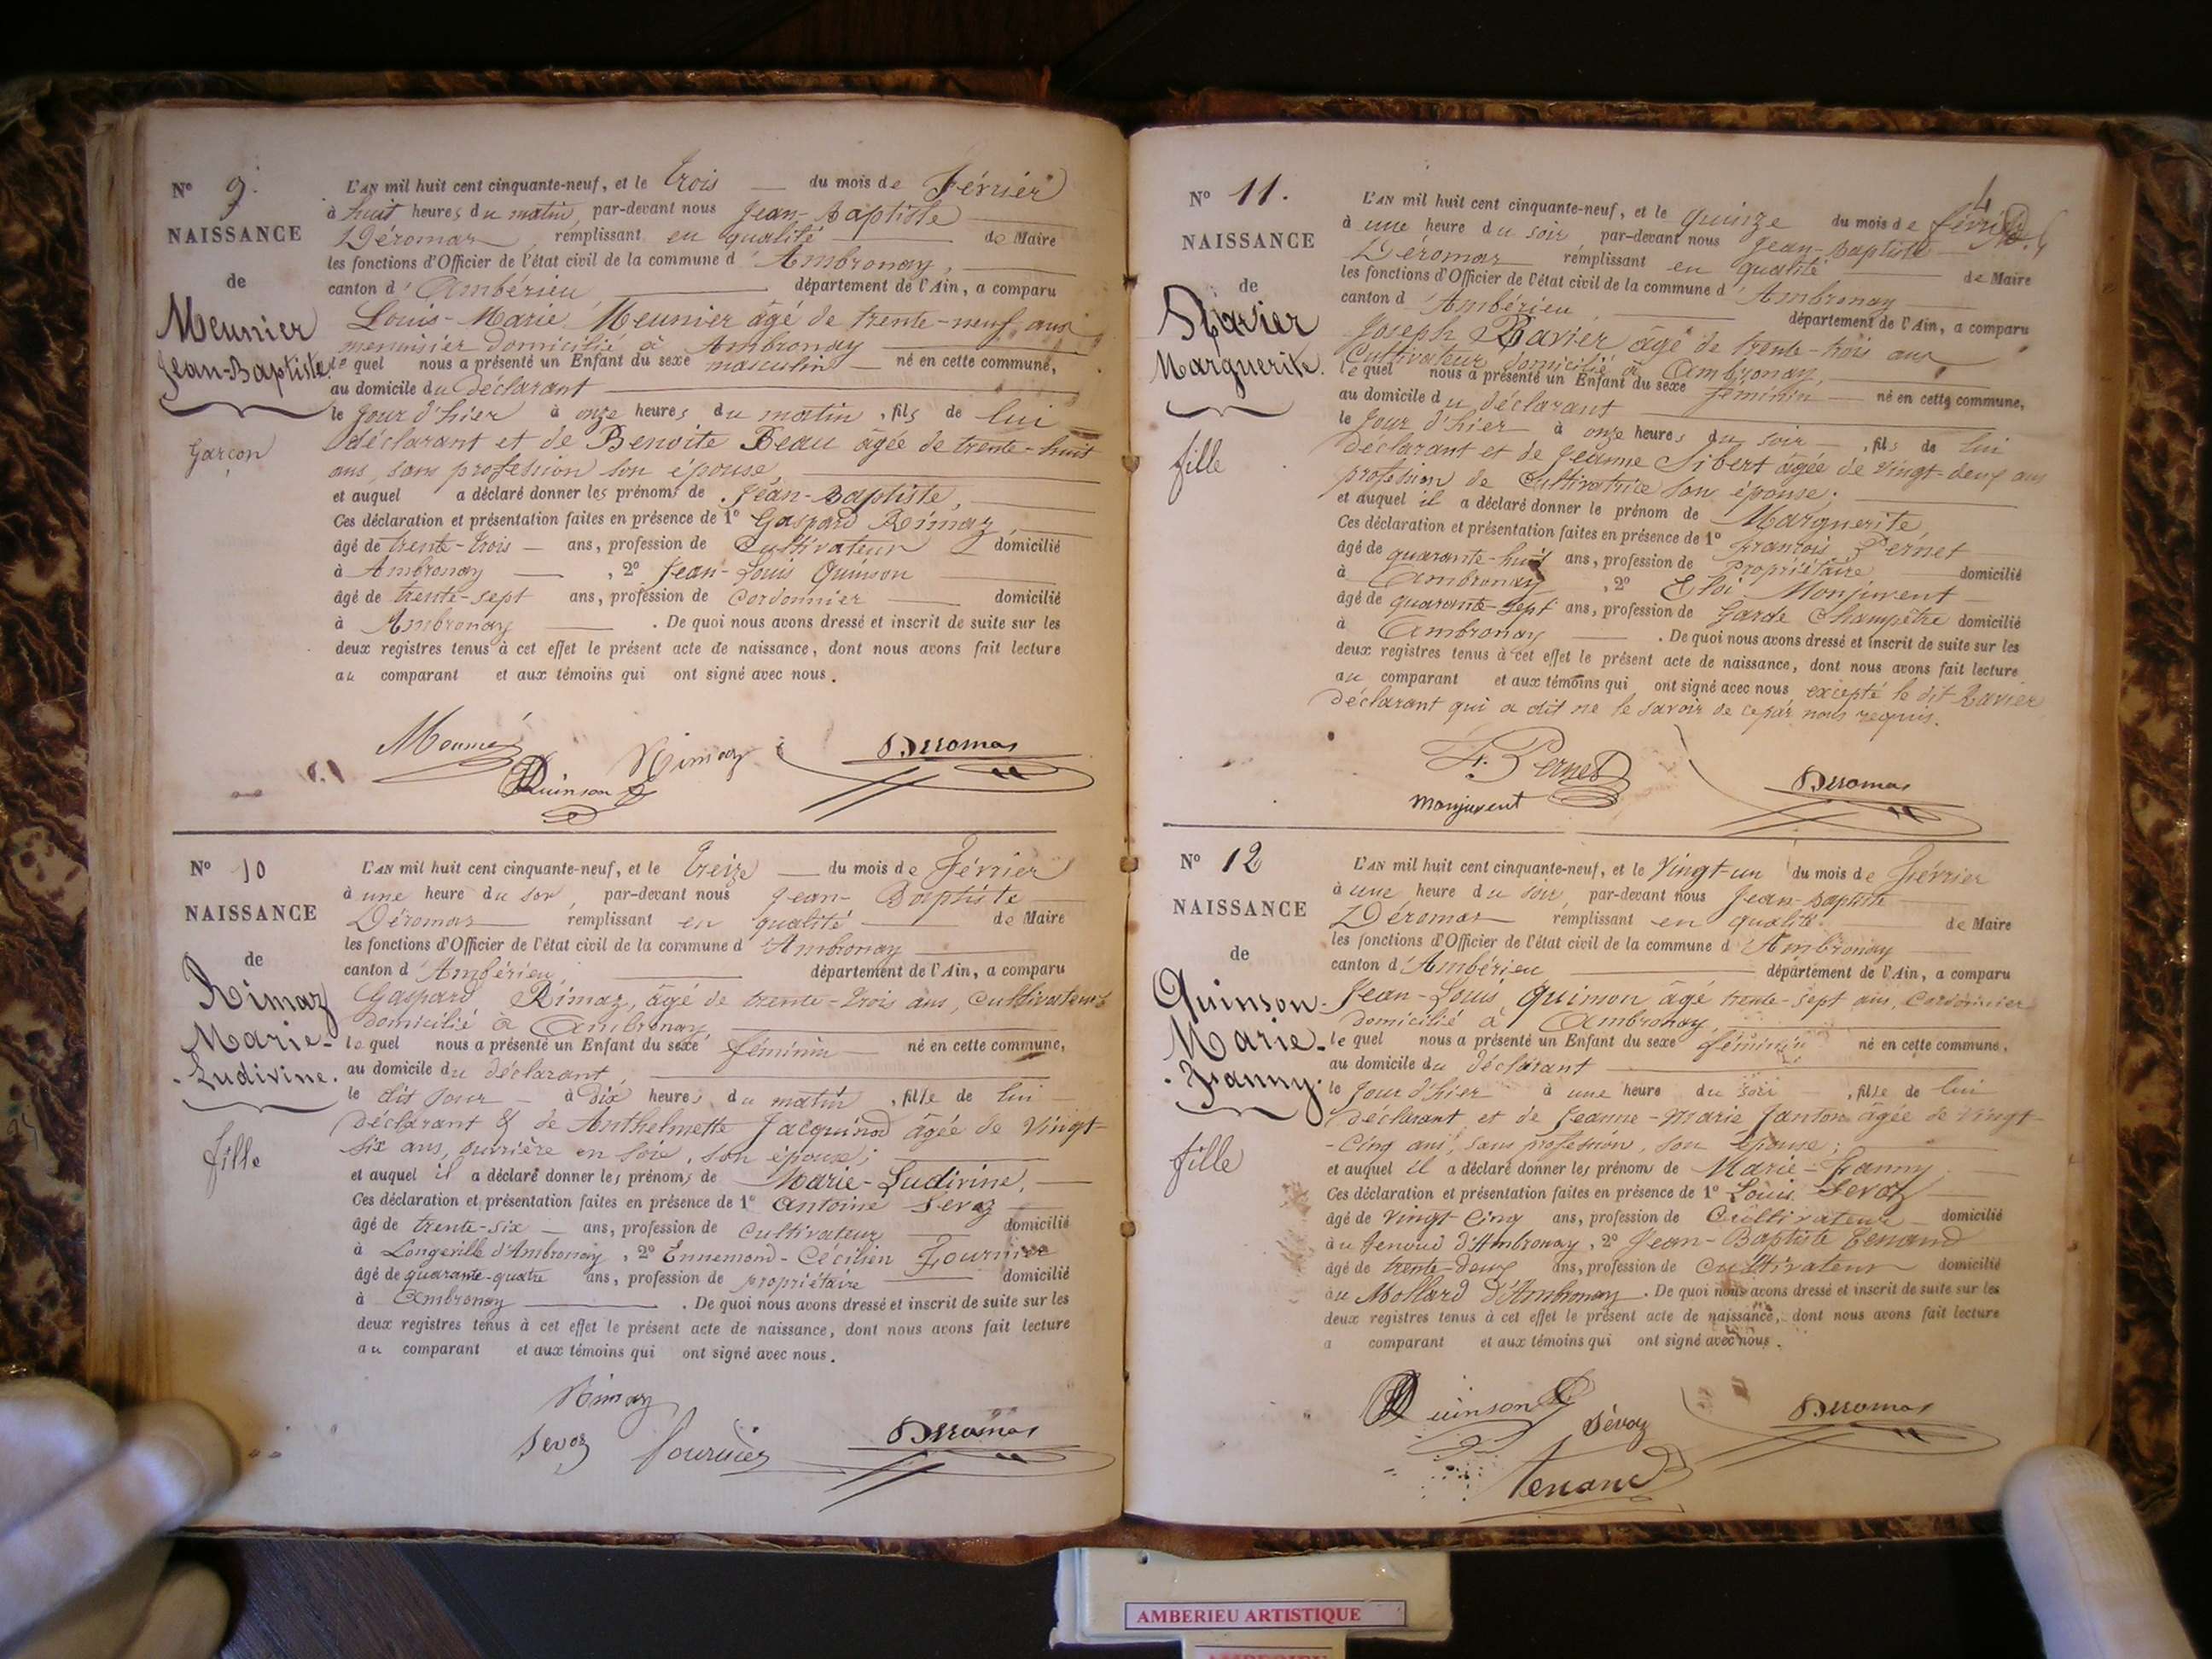 N° 9.
NAISSANCE
de
Meunier
Jean-Baptiste
Garçon
L'AN mil huit cent cinquante-neuf, et le trois — du mois de Février
à huit heures du matin, par-devant nous Jean-Baptiste
Déromas remplissant en qualité de Maire
les fonctions d'Officier de l'état civil de la commune d'Ambronay,
canton d'Ambérieu département de l'Ain, a comparu
Louis-Marie Meunier âgé de trente-neuf ans
menuisier domicilié à Ambronay
le quel nous a présenté un Enfant du sexe masculin — né en cette commune,
au domicile du déclarant
le jour d'hier à onze heures du matin, fils de lui
déclarant et de Benoite Beau âgée de trente-huit
ans, sans profession son épouse
et auquel a déclaré donner les prénoms de Jean-Baptiste,
Ces déclaration et présentation faites en présence de 1° Gaspard Rimaz,
âgé de trente-trois — ans, profession de Cultivateur domicilié
à Ambronay — , 2° Jean-Louis Quinson
âgé de trente-sept ans, profession de Cordonnier domicilié
à Ambronay . De quoi nous avons dressé et inscrit de suite sur les
deux registres tenus à cet effet le présent acte de naissance, dont nous avons fait lecture
au comparant et aux témoins qui ont signé avec nous.
Rimaz Deromas
Quinson
N° 10
NAISSANCE
de
Rimaz
Marie-
Ludivine.
fille
L'AN mil huit cent cinquante-neuf, et le treize — du mois de Février
à une heure du soir, par-devant nous Jean-Baptiste
Déromas remplissant en qualité de Maire
les fonctions d'Officier de l'état civil de la commune d'Ambronay
canton d'Ambérieu, département de l'Ain, a comparu
Gaspard Rimaz, âgé de trente-trois ans, Cultivateur
domicilié à Ambronay,
le quel nous a présenté un Enfant du sexe féminin né en cette commune,
au domicile du déclarant,
le dit jour — à dix heures du matin, fille de lui
déclarant & de Anthelmette Jacquinod âgée de Vingt-
six ans, ouvrière en soie, son épouse;
et auquel il a déclaré donner les prénoms de Marie-Ludivine,
Ces déclaration et présentation faites en présence de 1° Antoine Sevoz
âgé de trente-six — ans, profession de Cultivateur domicilié
à Longeville d'Ambronay, 2° Ennemond-Cécilien Fournier
âgé de quarante-quatre ans, profession de propriétaire domicilié
à Ambronay . De quoi nous avons dressé et inscrit de suite sur les
deux registres tenus à cet effet le présent acte de naissance, dont nous avons fait lecture
au comparant et aux témoins qui ont signé avec nous.
Rimaz
Sevoz fournier Deromas
4
N° 11.
NAISSANCE
de
Ravier
Marguerite.
fille
L'AN mil huit cent cinquante-neuf, et le quinze du mois de février
à une heure du soir par-devant nous Jean-Baptiste
Déromas remplissant en qualité de Maire
les fonctions d'Officier de l'état civil de la commune d'Ambronay
canton d'Ambérieu département de l'Ain, a comparu
Joseph Ravier âgé de trente-trois ans
Cultivateur domicilié à Ambronay,
le quel nous a présenté un Enfant du sexe féminin — né en cette commune,
au domicile du déclarant
le jour d'hier à onze heures du soir — , fils de lui
déclarant et de Jeanne Sibert âgée de vingt-deux ans
profession de Cultivatrice son épouse;
et auquel il a déclaré donner le prénom de Marguerite,
Ces déclaration et présentation faites en présence de 1° François Pernet
âgé de quarante-huit ans, profession de Propriétaire domicilié
à Ambronay , 2° Eloi Monjuvent
âgé de quarante-sept ans, profession de Garde Champêtre domicilié
à Ambronay . De quoi nous avons dressé et inscrit de suite sur les
deux registres tenus à cet effet le présent acte de naissance, dont nous avons fait lecture
au comparant et aux témoins qui ont signé avec nous excepté le dit Ravier
déclarant qui a dit ne le savoir de ce par nous requis.
F. Pernet
monjuvent Deromas
N° 12
NAISSANCE
de
Quinson
Marie-
Fanny.
fille
L'AN mil huit cent cinquante-neuf, et le Vingt-un du mois de Février
à une heure du soir, par-devant nous Jean-Baptiste
Déromas remplissant en qualité de Maire
les fonctions d'Officier de l'état civil de la commune d'Ambronay
canton d'Ambérieu département de l'Ain, a comparu
Jean-Louis Quinson âgé trente-sept ans, Cordonnier
domicilié à Ambronay,
le quel nous a présenté un Enfant du sexe féminin né en cette commune,
au domicile du déclarant
le jour d'hier à une heure du soir , fille de lui
déclarant et de Jeanne-Marie Janton âgée de Vingt-
-Cinq ans, sans profession, son épouse;
et auquel il a déclaré donner les prénoms de Marie-Fanny
Ces déclaration et présentation faites en présence de 1° Louis Sevoz
âgé de Vingt Cinq ans, profession de Cultivateur domicilié
au d'Ambronay, 2° Jean-Baptiste Tenand
âgé de trente-deux ans, profession de Cultivateur domicilié
au Mollard d'Ambronay. De quoi nous avons dressé et inscrit de suite sur les
deux registres tenus à cet effet le présent acte de naissance, dont nous avons fait lecture
a comparant et aux témoins qui ont signé avec nous.
Quinson Sévoz Deromas
Tenand
AMBERIEU ARTISTIQUE